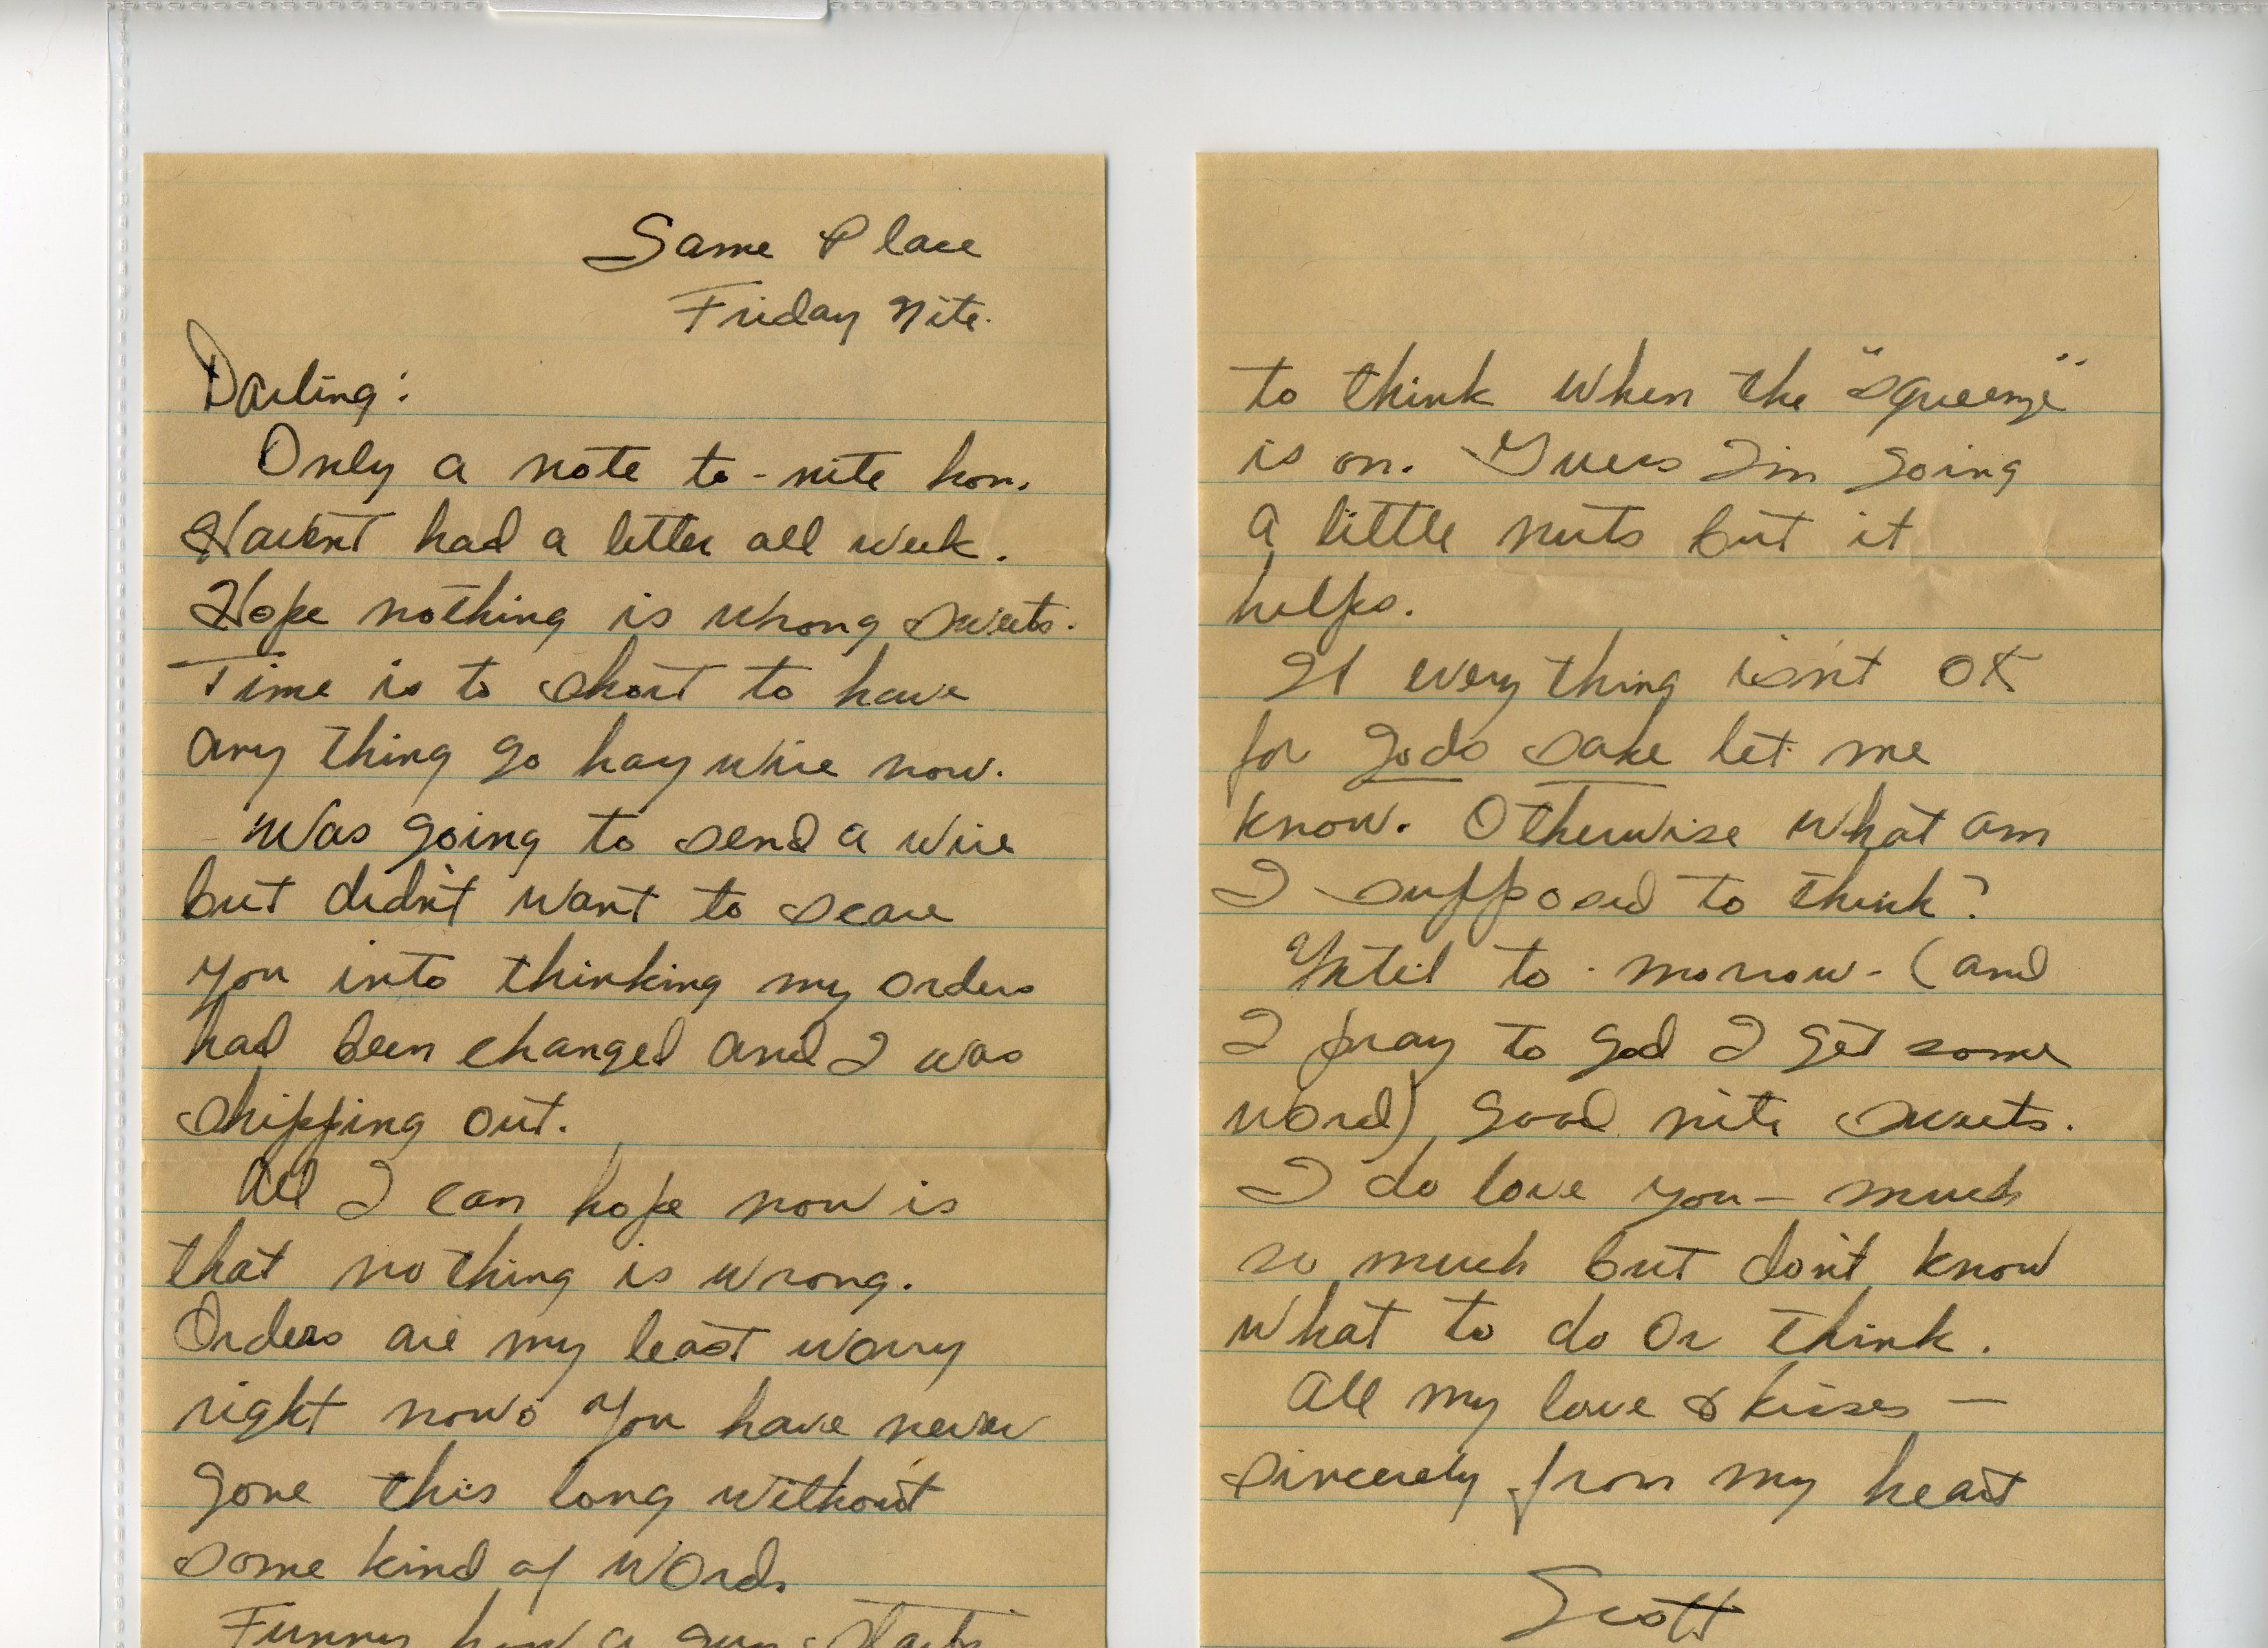 Same Place
Friday Nite.
Darling:
Only a note to-nite hon.
Havent had a letter all week.
Hope nothing is wrong sweets.
Time is to short to have
any thing go hay wire now.
Was going to send a wire
but didn't want to scare
you into thinking my orders
had been changed and I was
shipping out.
All I can hope now is
that nothing is wrong.
Orders are my least worry
right now. You have never
gone this long without
some kind of word.
Funny how a guy starts
to think when the "squeeze"
is on. Guess I'm going
a little nuts but it
helps.
If every thing isn't OK
for gods sake let me
know. Otherwise what am
I supposed to think?
Until to-morrow - (and
I pray to god I get some
word) good nite sweets.
I do love you — much
so much but don't know
what to do or think.
All my love & kisses —
sincerely from my heart
Scott